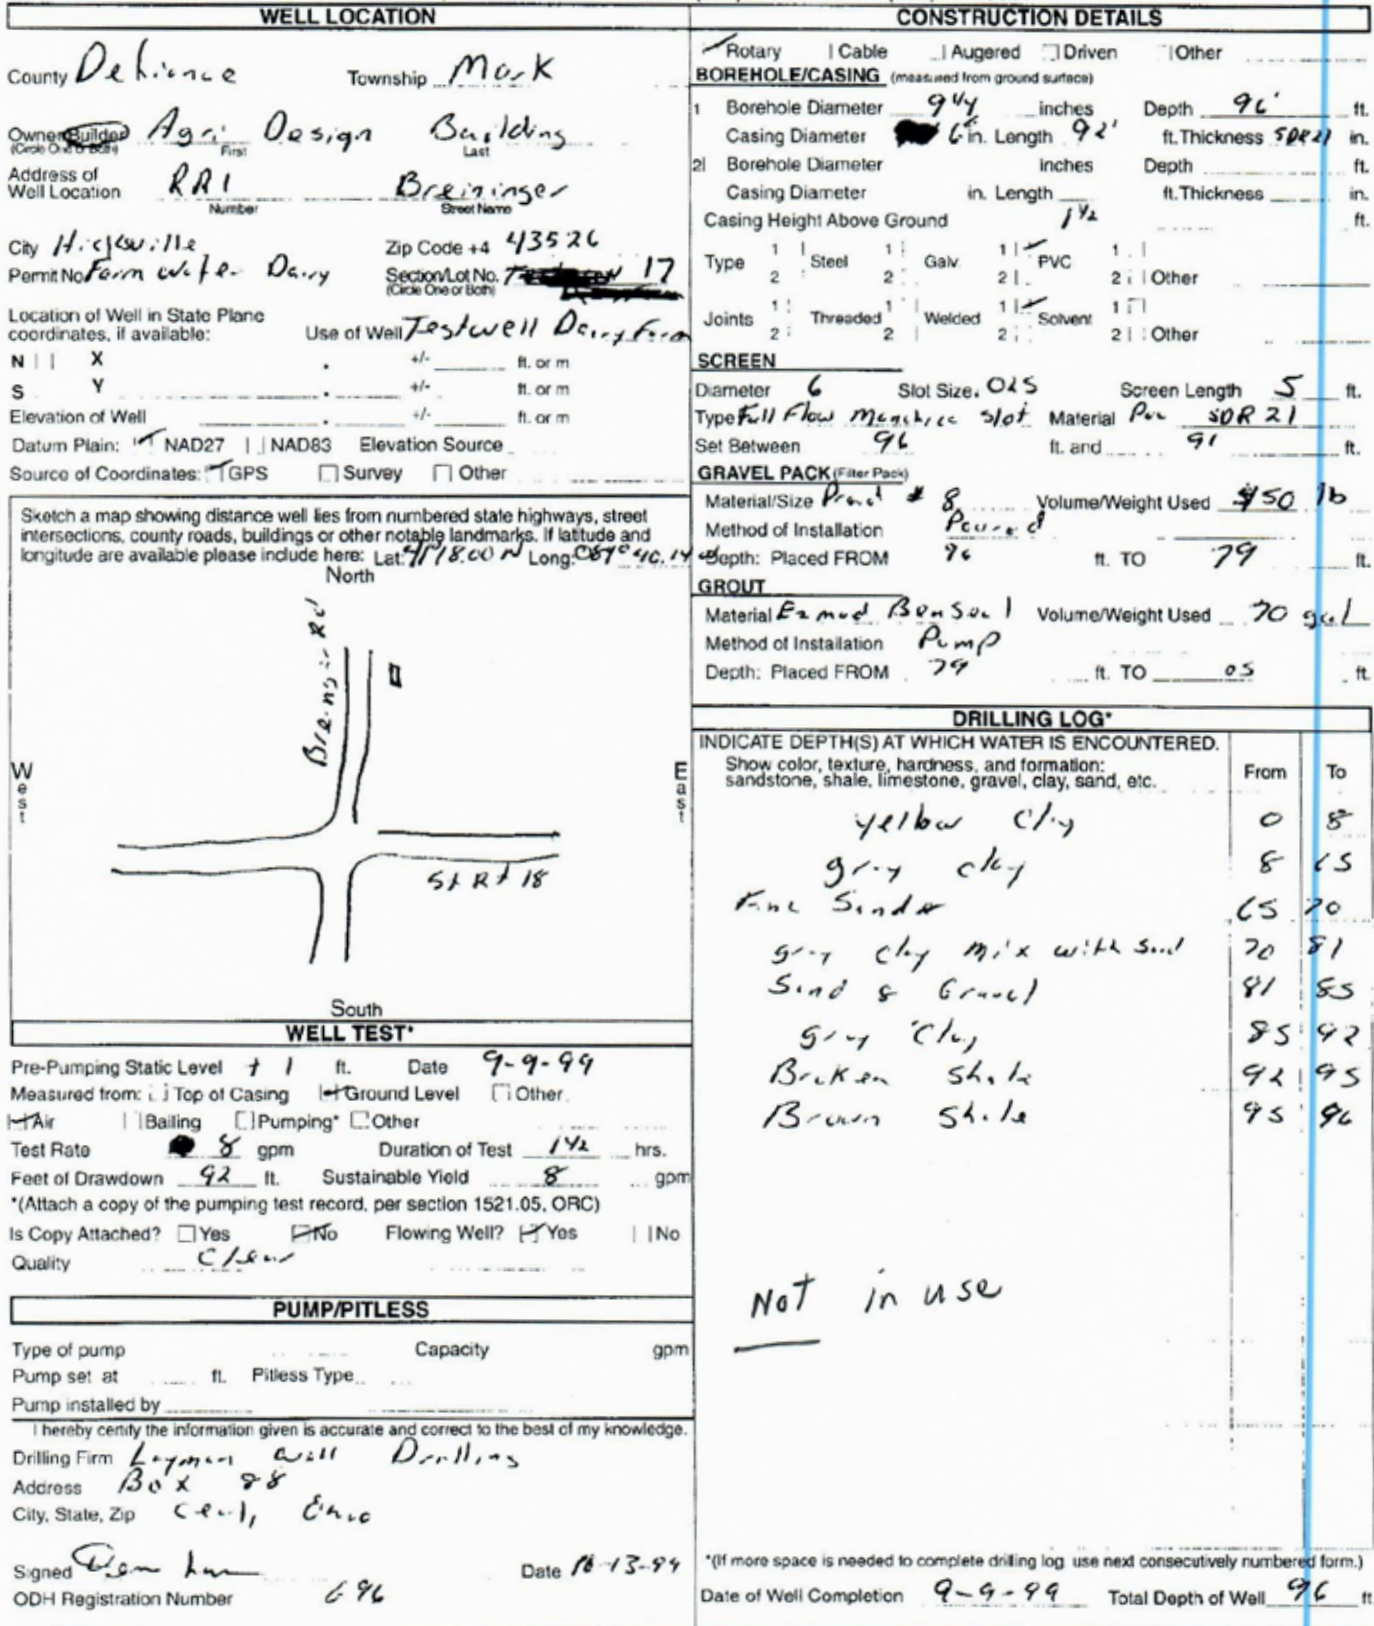 WELL LOCATION
County Defiance Township Mark
Owner/Builder Agri Design Building
(Circle One or Both) First Last
Address of
Well Location RR1 Breininger
Number Street Name
City Hicksville Zip Code +4 43526
Permit No Farm water Dairy Section/Lot No. 17
(Circle One or Both)
Location of Well in State Plane
coordinates, if available: Use of Well Testwell Dairy Farm
N X +/- ft. or m
S Y +/- ft. or m
Elevation of Well +/- ft. or m
Datum Plain: NAD27 NAD83 Elevation Source
Source of Coordinates: GPS Survey Other
Sketch a map showing distance well lies from numbered state highways, street
intersections, county roads, buildings or other notable landmarks. If latitude and
longitude are available please include here: Lat: 41°18.00 N Long: 084° 40.14
North
Breining Rd
West
East
St Rt 18
South
WELL TEST*
Pre-Pumping Static Level + 1 ft. Date 9-9-99
Measured from: Top of Casing Ground Level Other
Air Bailing Pumping* Other
Test Rate 8 gpm Duration of Test 1 1/2 hrs.
Feet of Drawdown 92 ft. Sustainable Yield 8 gpm
*(Attach a copy of the pumping test record, per section 1521.05, ORC)
Is Copy Attached? Yes No Flowing Well? Yes No
Quality Clear
PUMP/PITLESS
Type of pump Capacity gpm
Pump set at ft. Pitless Type
Pump installed by
I hereby certify the information given is accurate and correct to the best of my knowledge.
Drilling Firm Layman Well Drilling
Address Box 88
City, State, Zip Cecil, Ohio
Signed Date 10-13-99
ODH Registration Number 696
CONSTRUCTION DETAILS
Rotary Cable Augered Driven Other
BOREHOLE/CASING (measured from ground surface)
1 Borehole Diameter 9 1/4 inches Depth 96' ft.
Casing Diameter 6 in. Length 92' ft. Thickness SDR21 in.
2 Borehole Diameter inches Depth ft.
Casing Diameter in. Length ft. Thickness in.
Casing Height Above Ground 1 1/2 ft.
Type 1 Steel 1 Galv. 1 PVC 1
2 2 2 2 Other
Joints 1 Threaded 1 Welded 1 Solvent 1
2 2 2 2 Other
SCREEN
Diameter 6 Slot Size .025 Screen Length 5 ft.
Type Full Flow Machine Slot Material Pvc SDR 21
Set Between 96 ft. and 91 ft.
GRAVEL PACK (Filter Pack)
Material/Size # 8 Volume/Weight Used 450 lb
Method of Installation Poured
Depth: Placed FROM 96 ft. TO 79 ft.
GROUT
Material Ezmud Benseal Volume/Weight Used 70 gal
Method of Installation Pump
Depth: Placed FROM 79 ft. TO 05 ft.
DRILLING LOG*
INDICATE DEPTH(S) AT WHICH WATER IS ENCOUNTERED.
Show color, texture, hardness, and formation: From To
sandstone, shale, limestone, gravel, clay, sand, etc.
yellow Clay 0 8
gray clay 8 65
Fine Sand 65 70
gray clay mix with sand 70 81
Sand & Gravel 81 85
gray Clay 85 92
Broken Shale 92 95
Brown Shale 95 96
Not in use
*(If more space is needed to complete drilling log, use next consecutively numbered form.)
Date of Well Completion 9-9-99 Total Depth of Well 96 ft